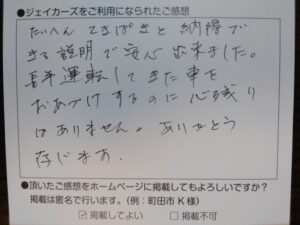 ●ジェイカーズをご利用になられたご感想
たいへん てきぱきと 納得で
きる説明で安心出来ました。
長年運転してきた車を
おあづけするのに心残り
はありません。ありがとう
存じます.
●頂いたご感想をホームページに掲載してもよろしいですか?
掲載は匿名で行います。(例:町田市K様)
☑掲載してよい □掲載不可